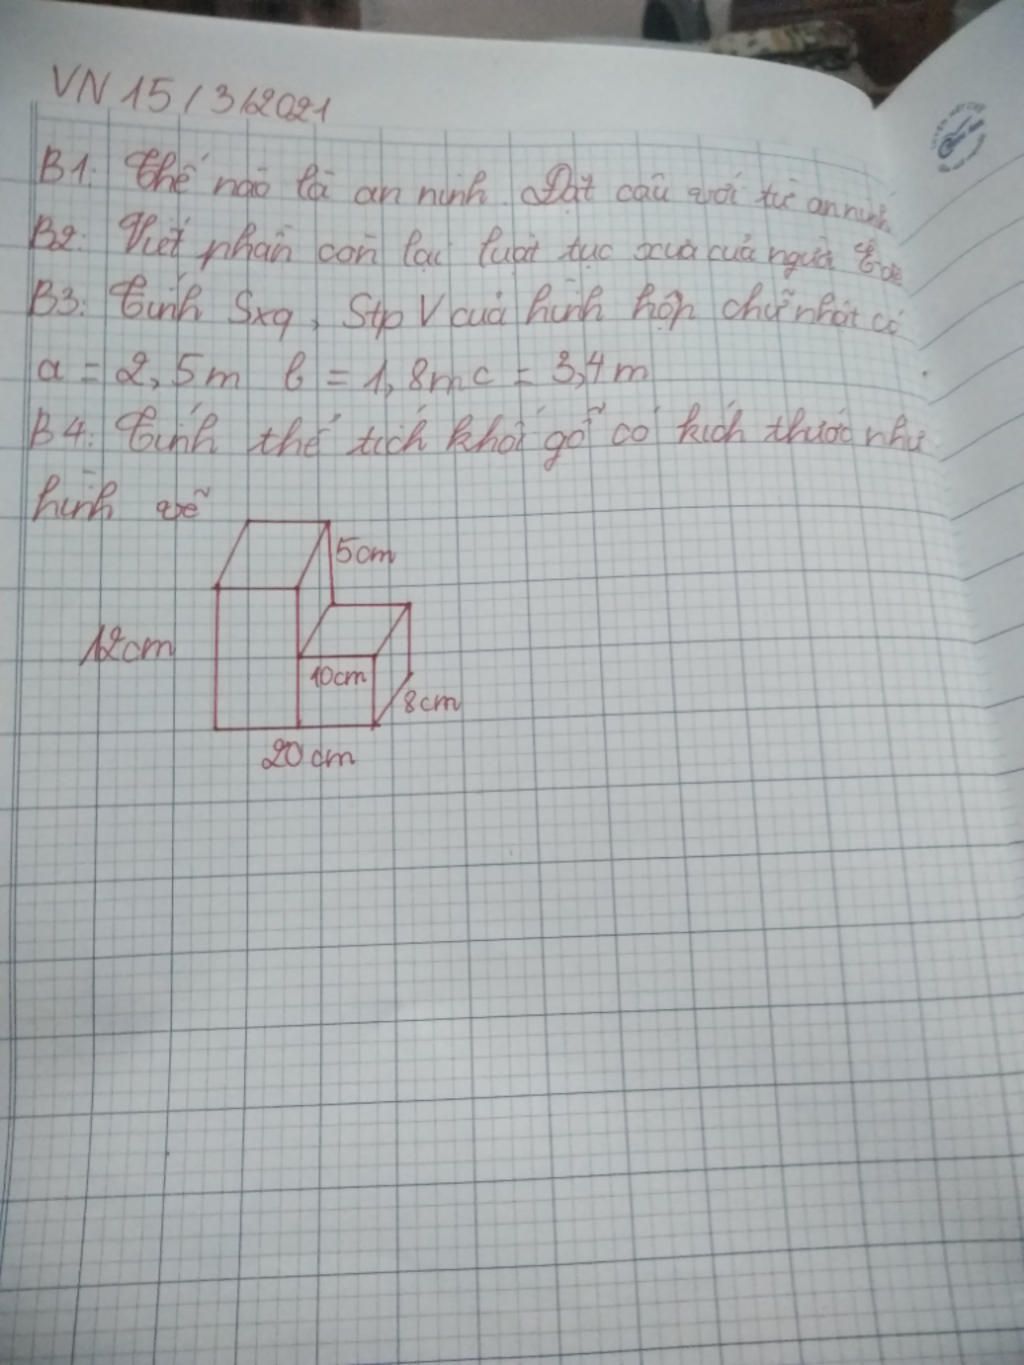 VN 15/3/2021
B1: Thế nào là an ninh. Đặt câu với từ an ninh
B2: Viết phần còn lại luật tục xưa của người Ê đê
B3: Tính Sxq, Stp V của hình hộp chữ nhật có
a = 2,5m b = 1,8m c = 3,4m
B4: Tính thể tích khối gỗ có kích thước như
hình vẽ
5cm
12cm
10cm
8cm
20cm